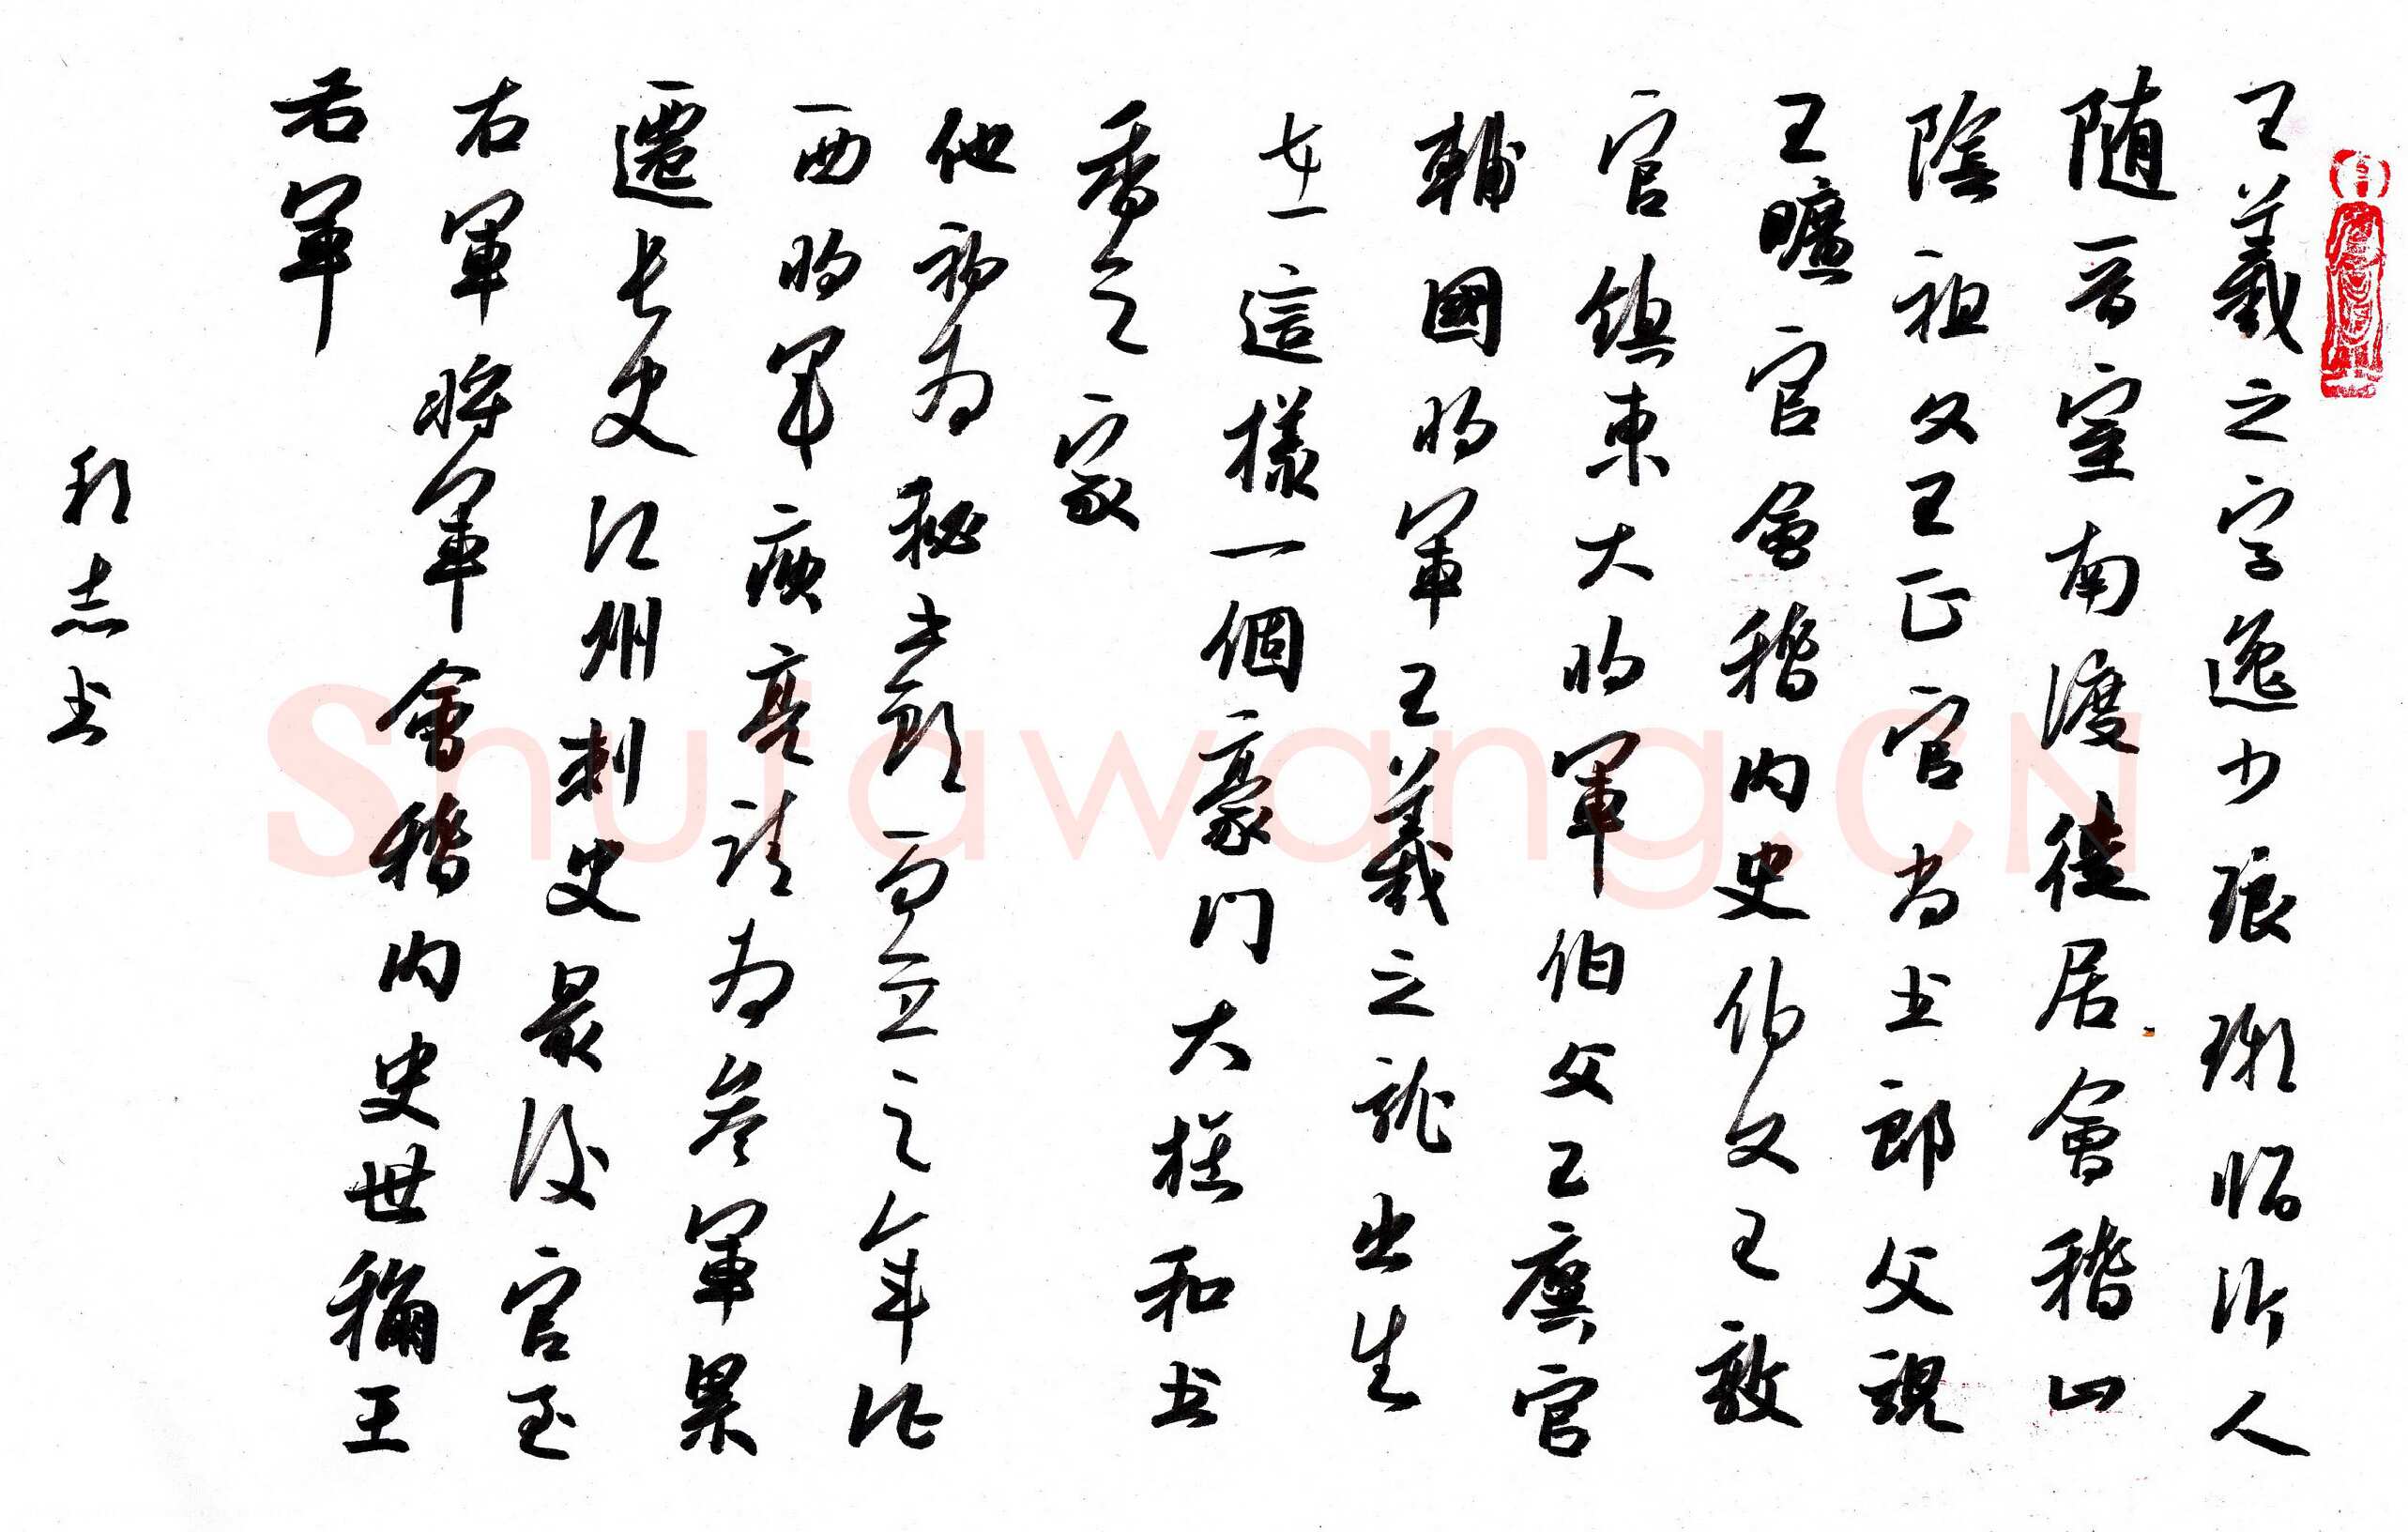 王羲之字逸少琅琊临沂人
随晋室南渡徒居會稽山
陰祖父王正官尚书郎父親
王曠官會稽内史伯父王敦
官鎮東大将軍伯父王廙官
輔國将軍王羲之就出生
在這樣一個豪門大族和书
香之家
他初为秘书郎而立之年征
西将军庾亮请为参軍累
遷长史江州刺史最後官至
右軍将軍會稽内史世稱王
右軍
志书
Shufawang.CN